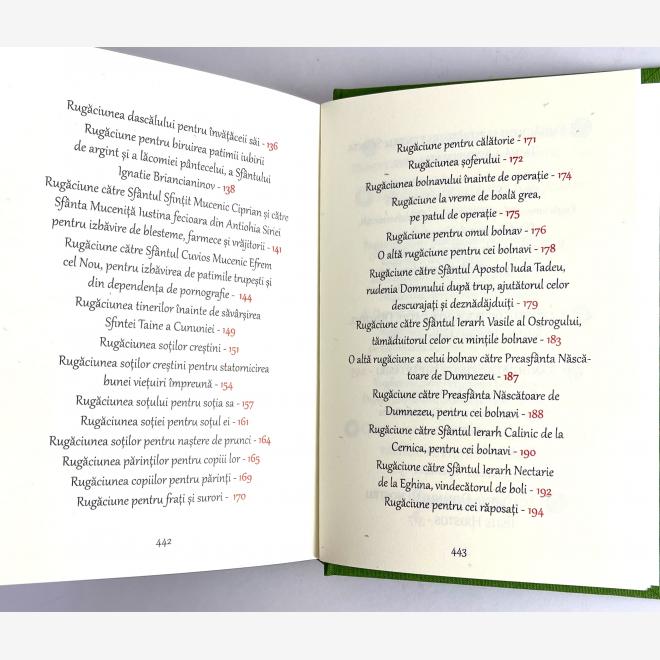 Rugăciunea dascălului pentru învățăceii săi - 136
Rugăciune pentru biruirea patimii iubirii
de argint și a lăcomiei pântecelui, a Sfântului
Ignatie Briancianinov - 138
Rugăciune către Sfântul Sfințit Mucenic Ciprian și către
Sfânta Muceniță Iustina fecioara din Antiohia Siriei
pentru izbăvire de blesteme, farmece și vrăjitorii - 141
Rugăciune către Sfântul Cuvios Mucenic Efrem
cel Nou, pentru izbăvirea de patimile trupești și
din dependența de pornografie - 144
Rugăciunea tinerilor înainte de săvârșirea
Sfintei Taine a Cununiei - 149
Rugăciunea soților creștini - 151
Rugăciunea soților creștini pentru statornicirea
bunei viețuiri împreună - 154
Rugăciunea soțului pentru soția sa - 157
Rugăciunea soției pentru soțul ei - 161
Rugăciunea soților pentru naștere de prunci - 164
Rugăciunea părinților pentru copiii lor - 165
Rugăciunea copiilor pentru părinți - 169
Rugăciune pentru frați și surori - 170
442
Rugăciune pentru călătorie - 171
Rugăciunea șoferului - 172
Rugăciunea bolnavului înainte de operație - 174
Rugăciune la vreme de boală grea,
pe patul de operație - 175
Rugăciune pentru omul bolnav - 176
O altă rugăciune pentru cei bolnavi - 178
Rugăciune către Sfântul Apostol Iuda Tadeu,
rudenia Domnului după trup, ajutătorul celor
descurajați și deznădăjduiți - 179
Rugăciune către Sfântul Ierarh Vasile al Ostrogului,
tămăduitorul celor cu mințile bolnave - 183
O altă rugăciune a celui bolnav către Preasfânta Născă-
toare de Dumnezeu - 187
Rugăciune către Preasfânta Născătoare de
Dumnezeu, pentru cei bolnavi - 188
Rugăciune către Sfântul Ierarh Calinic de la
Cernica, pentru cei bolnavi - 190
Rugăciune către Sfântul Ierarh Nectarie
de la Eghina, vindecătorul de boli - 192
Rugăciune pentru cei răposați - 194
443